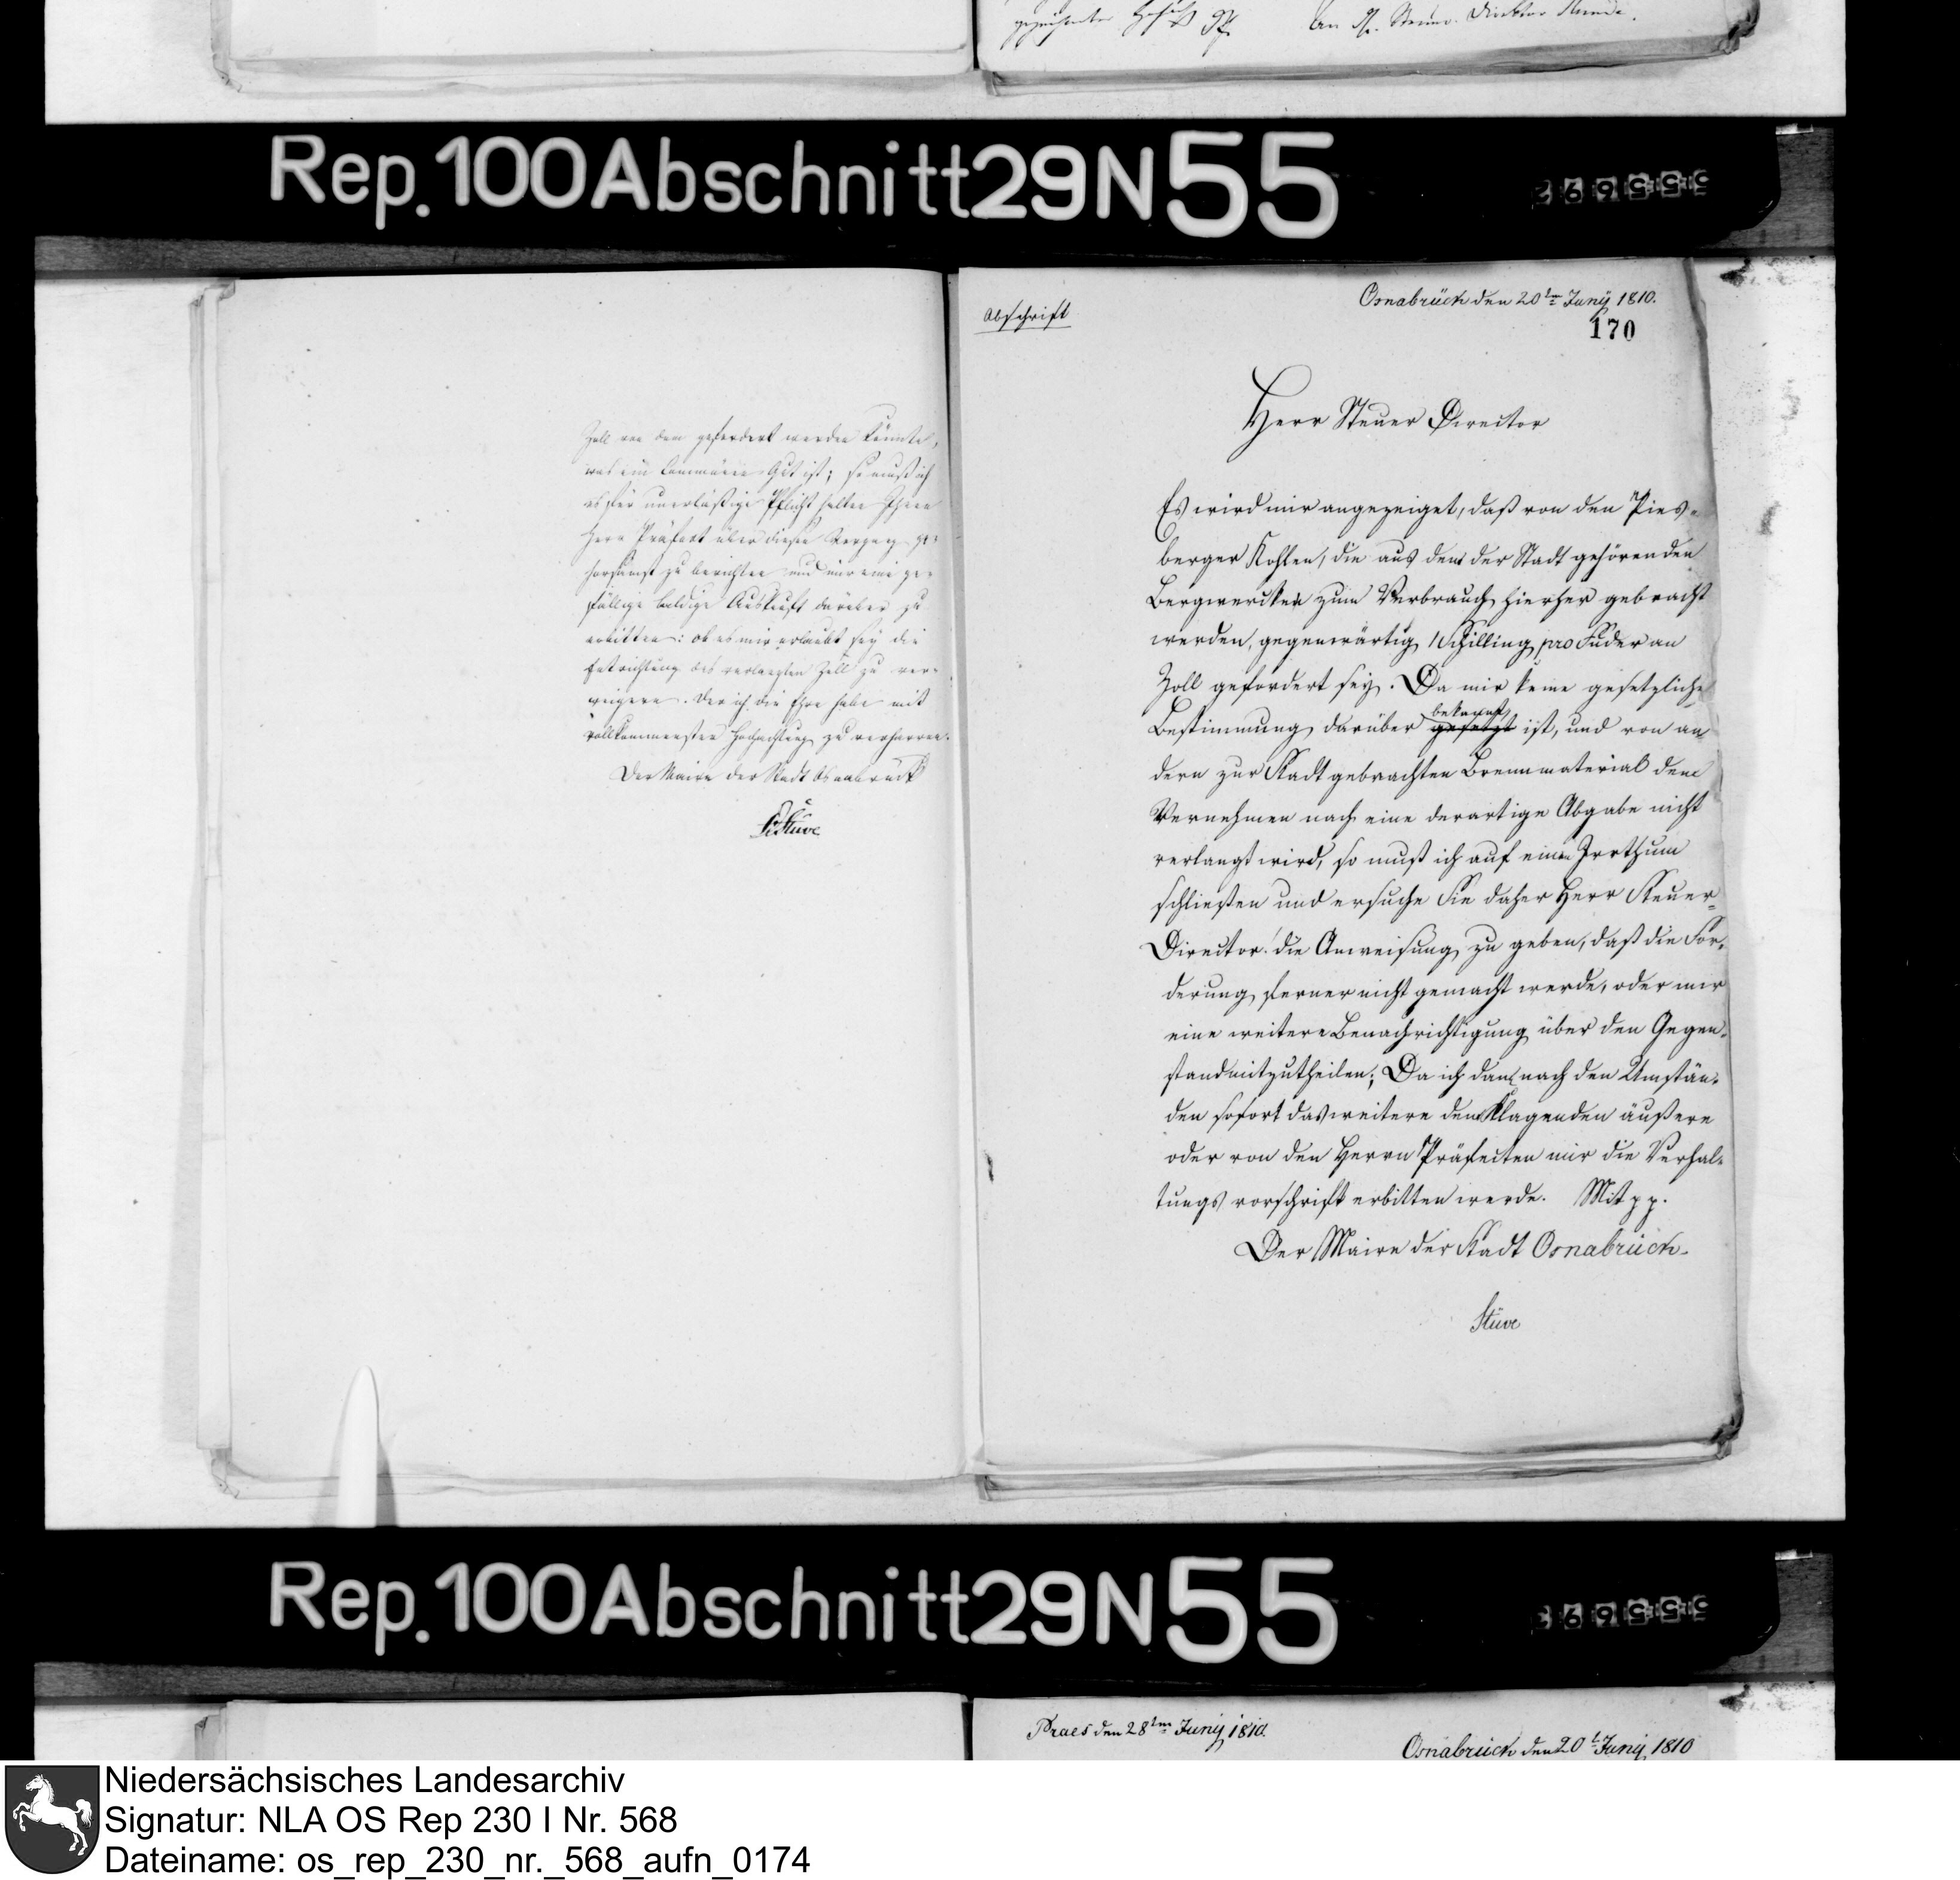 gezeichneter
An H. Steuer Direktor
Rep. 100 Abschnitt 29 N 55
Zoll von dem gefordert werden könnte,
was ein Communion Gut ist; so muß ich
es für unerläßige Pflicht halten Ihnen
Herr Präfect über diesen Vorgang ge-
horsamst zu berichten und mir eine ge-
fällige baldige Auskunft darüber zu
erbitten: ob es mir erlaubt sey die
Entrichtung des verlangten Zoll zu ver-
weigern. Der ich die Ehre habe mit
vollkommenster Hochachtung zu verharren.
Der Maire der Stadt Osnabrück
Stüve
Abschrift
Osnabrück den 20ten Juny 1810.
170
Herr Steuer Director
Es wird mir angezeiget, daß von den Pies-
berger Kohlen, die aus dem der Stadt gehörenden
Bergwercken zum Verbrauch hierher gebracht
werden, gegenwärtig 1 Schilling pro Fuder an
Zoll gefordert sey. Da mir keine gesetzliche
bekannt
Bestimmung darüber gesetzt ist, und von an
dern zur Stadt gebrachten Brennmaterial dem
Vernehmen nach eine derartige Abgabe nicht
verlangt wird, so muß ich auf einen Irrthum
schließen und ersuche Sie daher Herr Steuer-
Director! die Anweisung zu geben, daß die For-
derung ferner nicht gemacht werde, oder mir
eine weitere Benachrichtigung über den Gegen-
stand mitzutheilen; Da ich dann nach den Umstän-
den sofort das weitere den Klagenden äußere
oder von den Herrn Präfecten mir die Verhal-
tungs vorschrift erbitten werde. Mit pp.
Der Maire der Stadt Osnabrück.
Stüve
Rep. 100 Abschnitt 29 N 55
Praes den 28ten Juny 1810.
Osnabrück den 20t Juny 1810
Niedersächsisches Landesarchiv
Signatur: NLA OS Rep 230 I Nr. 568
Dateiname: os_rep_230_nr._568_aufn_0174